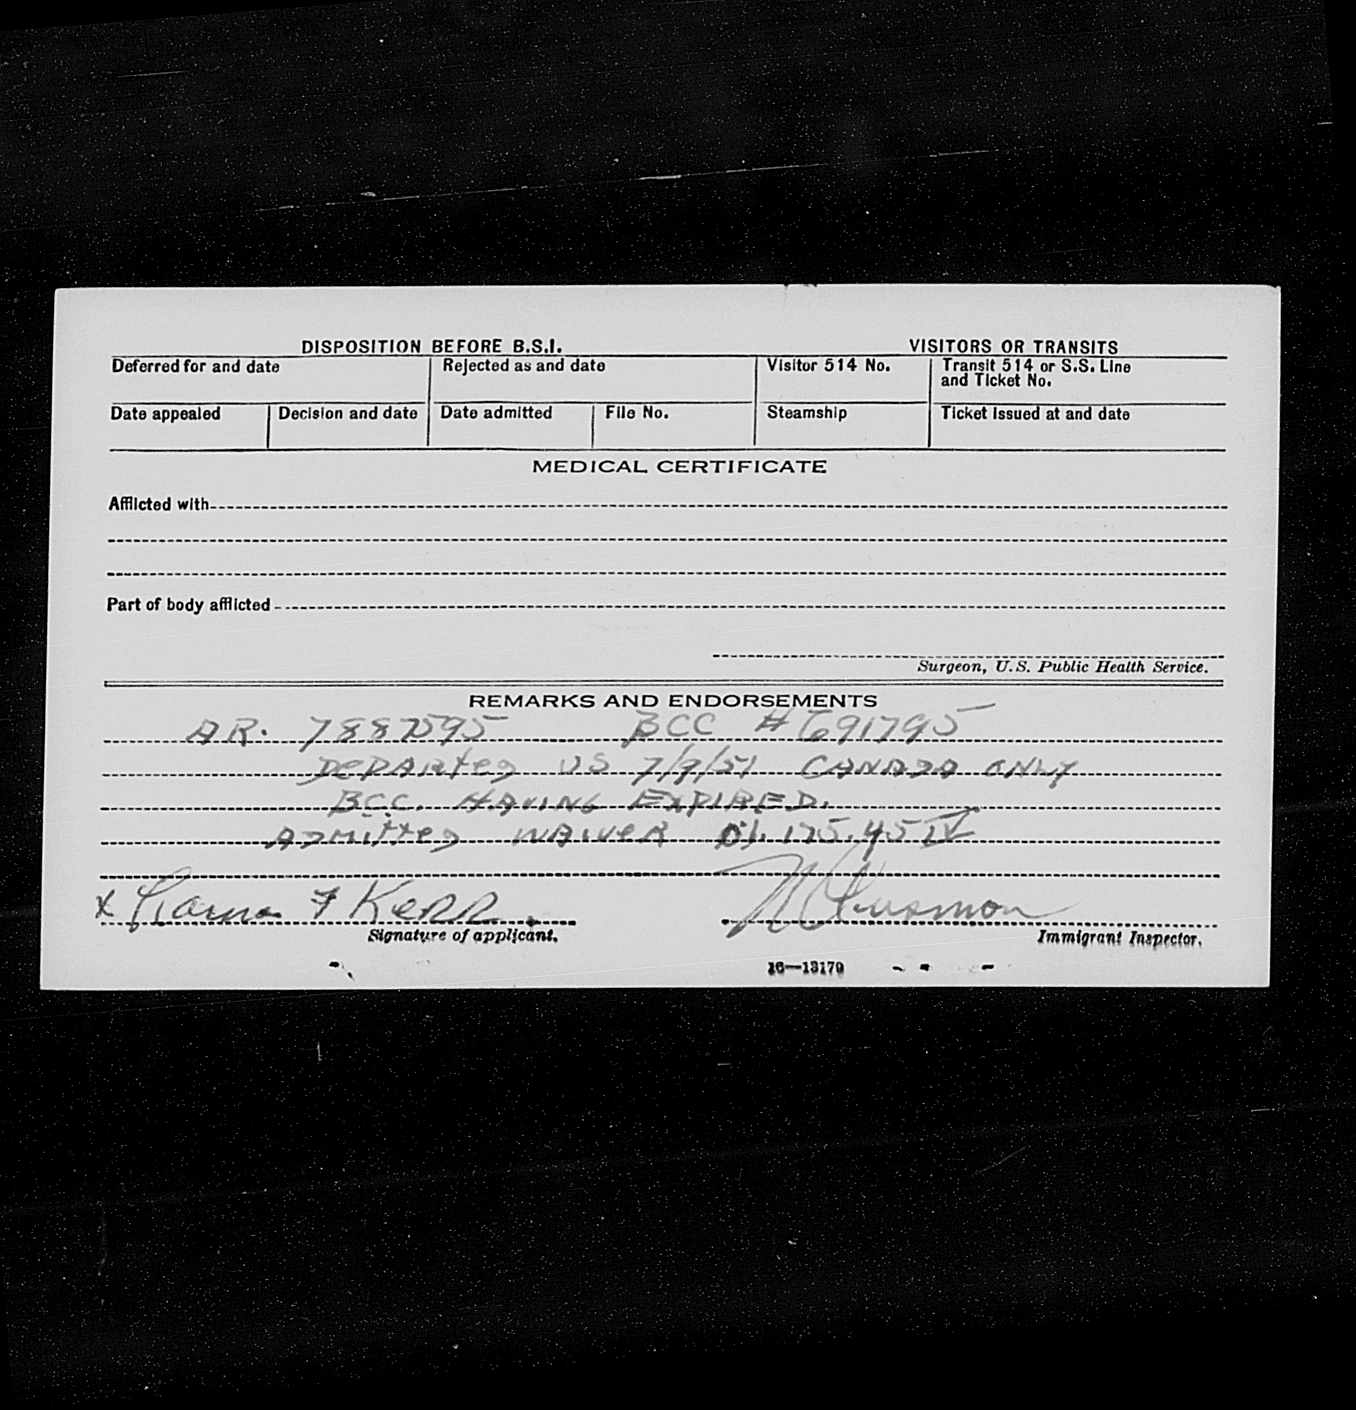 DISPOSITION BEFORE B.S.I.
VISITORS OR TRANSITS
Deferred for and date
Rejected as and date
Visitor 514 No.
Transit 514 or S.S. Line
and Ticket No.
Date appealed
Decision and date
Date admitted
File No.
Steamship
Ticket issued at and date
MEDICAL CERTIFICATE
Afflicted with
Part of body afflicted
Surgeon, U.S. Public Health Service.
REMARKS AND ENDORSEMENTS
AR. 7887595 BCC #691795
DEPARTED US 7/9/51 CANADA ONLY
BCC. HAVING EXPIRED.
ADMITTED WAIVER 175.45
x F Kerr
Signature of applicant.
Immigrant Inspector.
16—13179